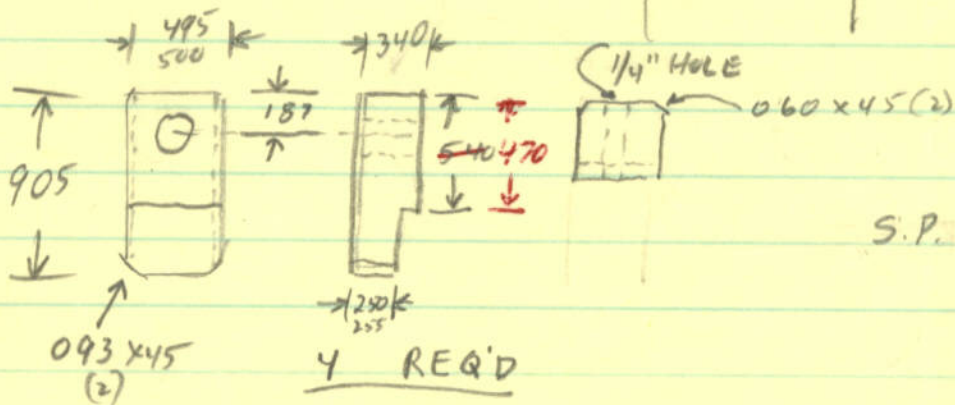 495
500
340
1/4" HOLE
187
060 x 45 (2)
905
540 470
S.P.
250
255
093 x 45
(2)
4 REQ'D